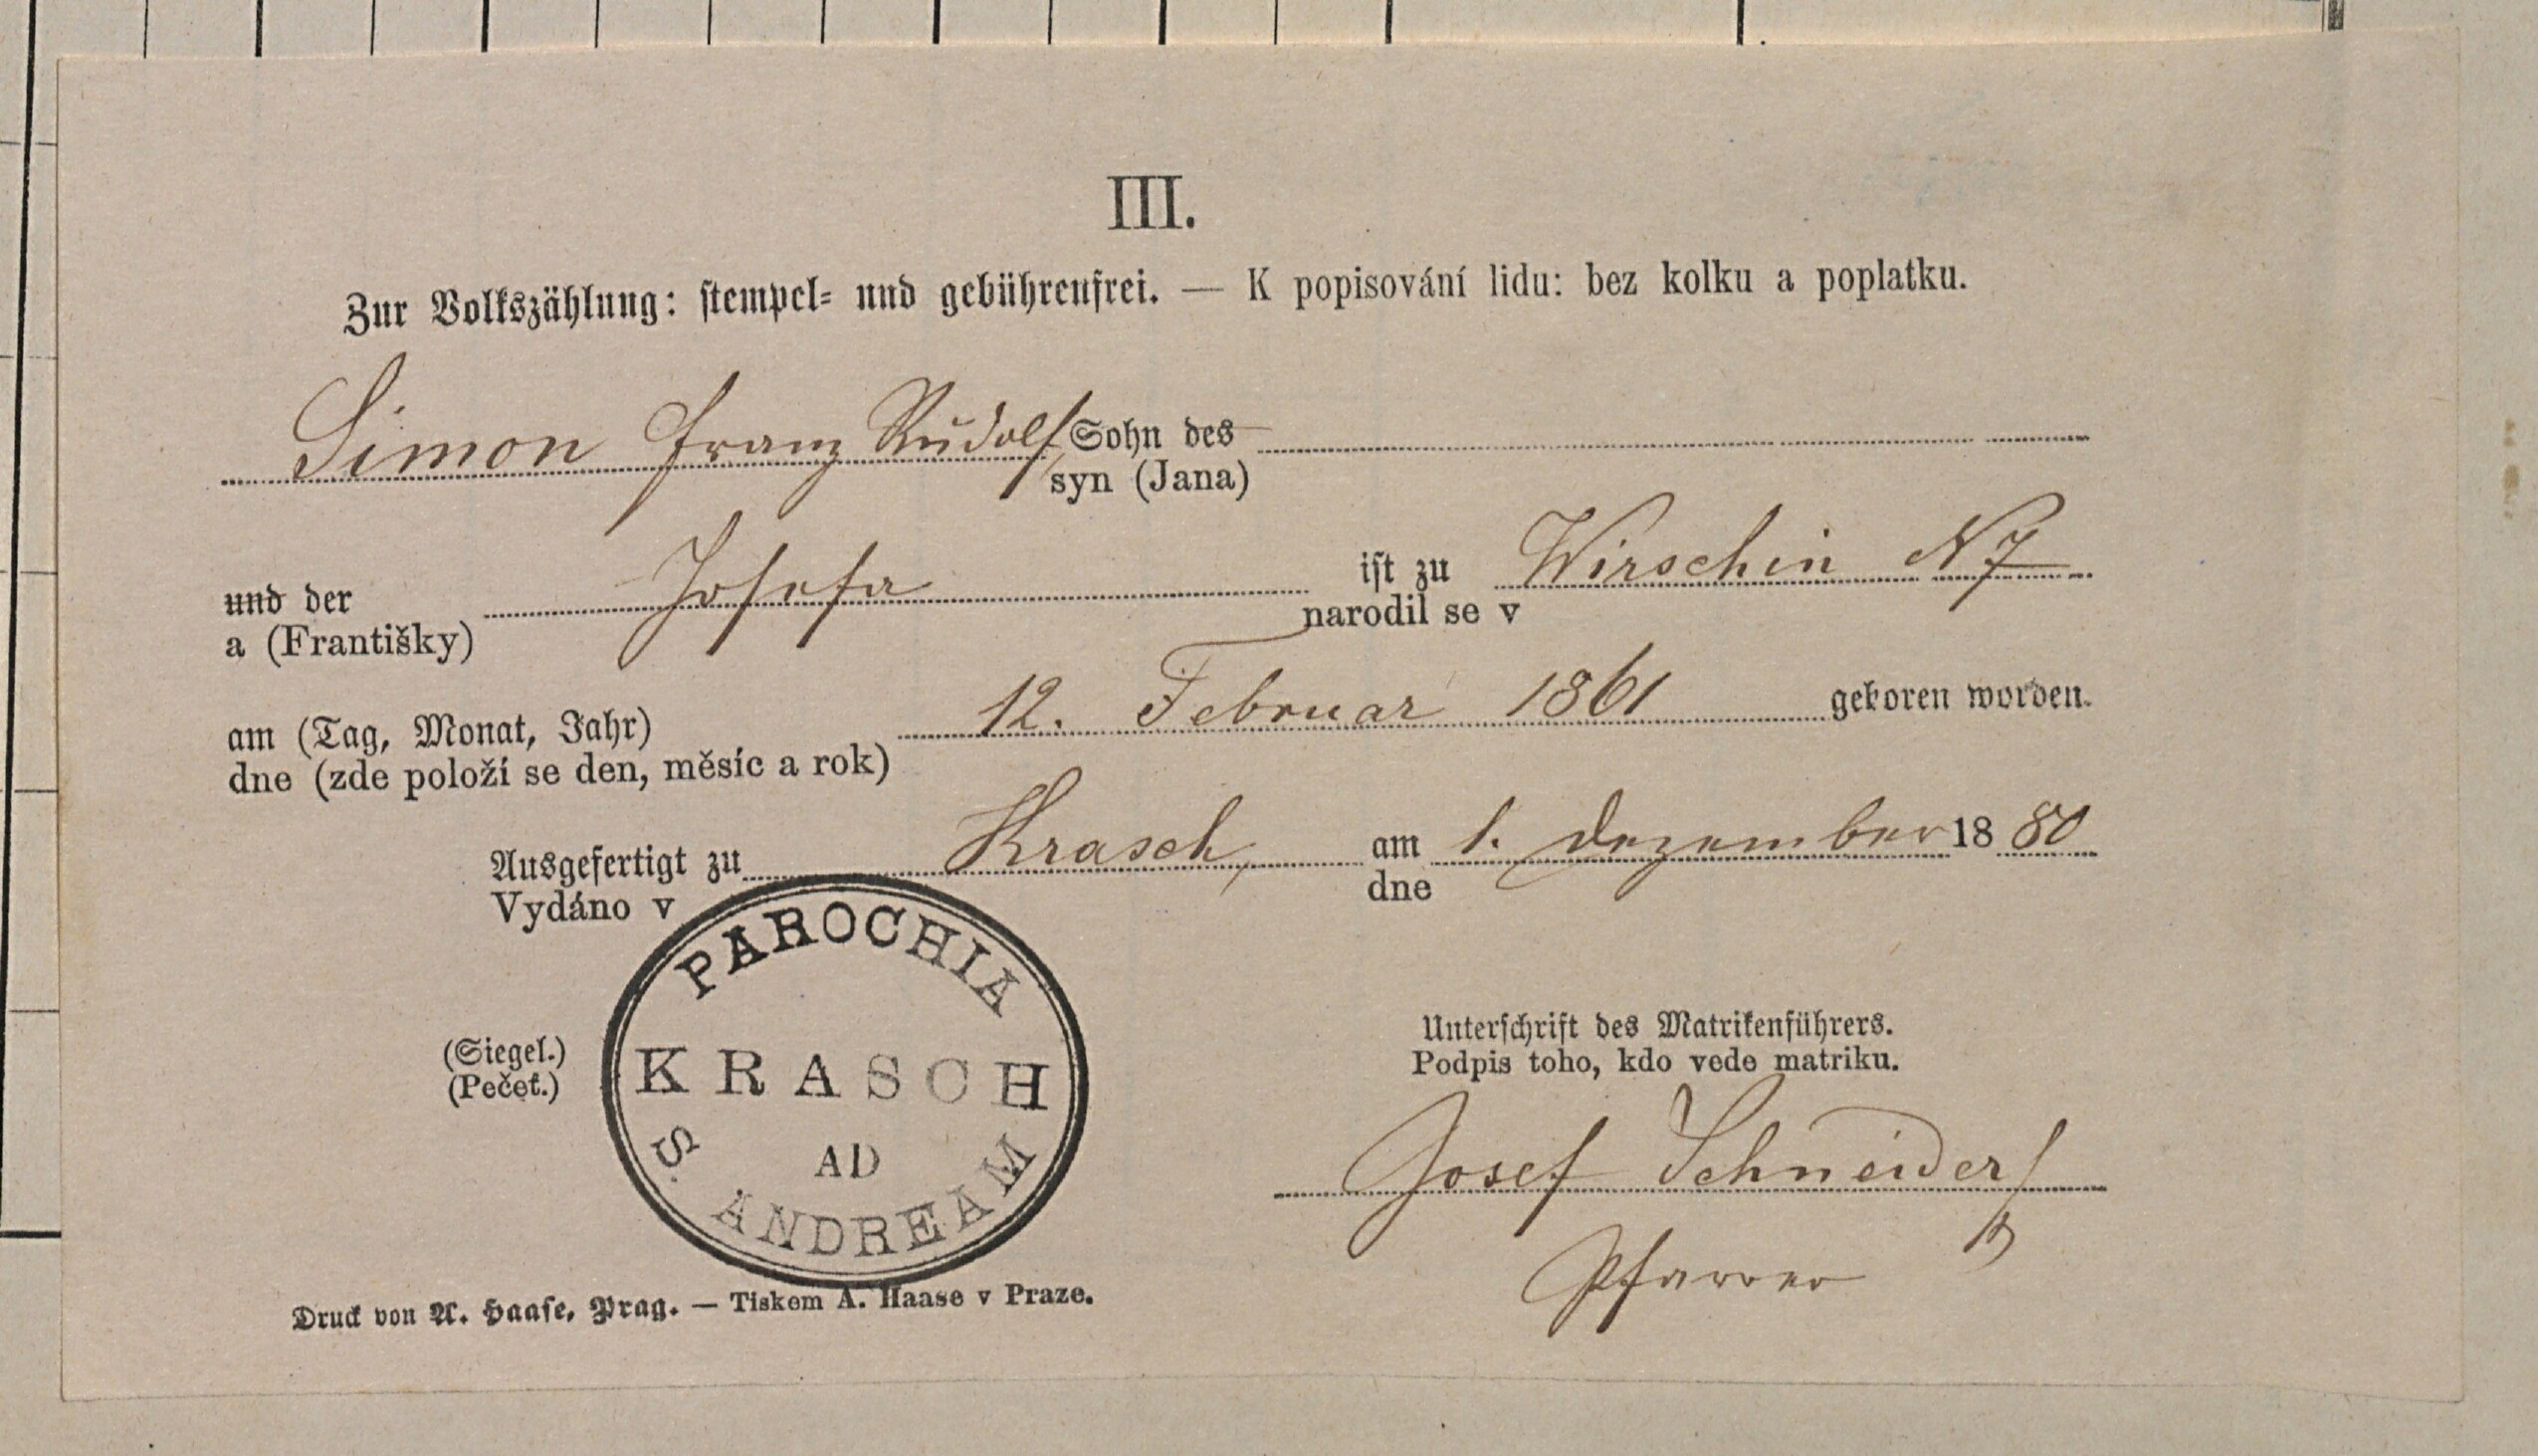 III.
Zur Volkszählung: stempel- und gebührenfrei. — K popisování lidu: bez kolku a poplatku.
Simon Franz Rudolf Sohn des
syn (Jana)
und der Josefa ist zu Wirschin N 7
a (Františky) narodil se v
am (Tag, Monat, Jahr) 12. Februar 1861 geboren worden.
dne (zde položí se den, měsíc a rok)
Ausgefertigt zu Krasch, am 1. Dezember 1880
Vydáno v dne
PAROCHIA
KRASCH
AD
S. ANDREAM
(Siegel.)
(Pečeť.)
Unterschrift des Matrikenführers.
Podpis toho, kdo vede matriku.
Josef Schneider
Pfarrer
Druck von A. Haase, Prag. — Tiskem A. Haase v Praze.